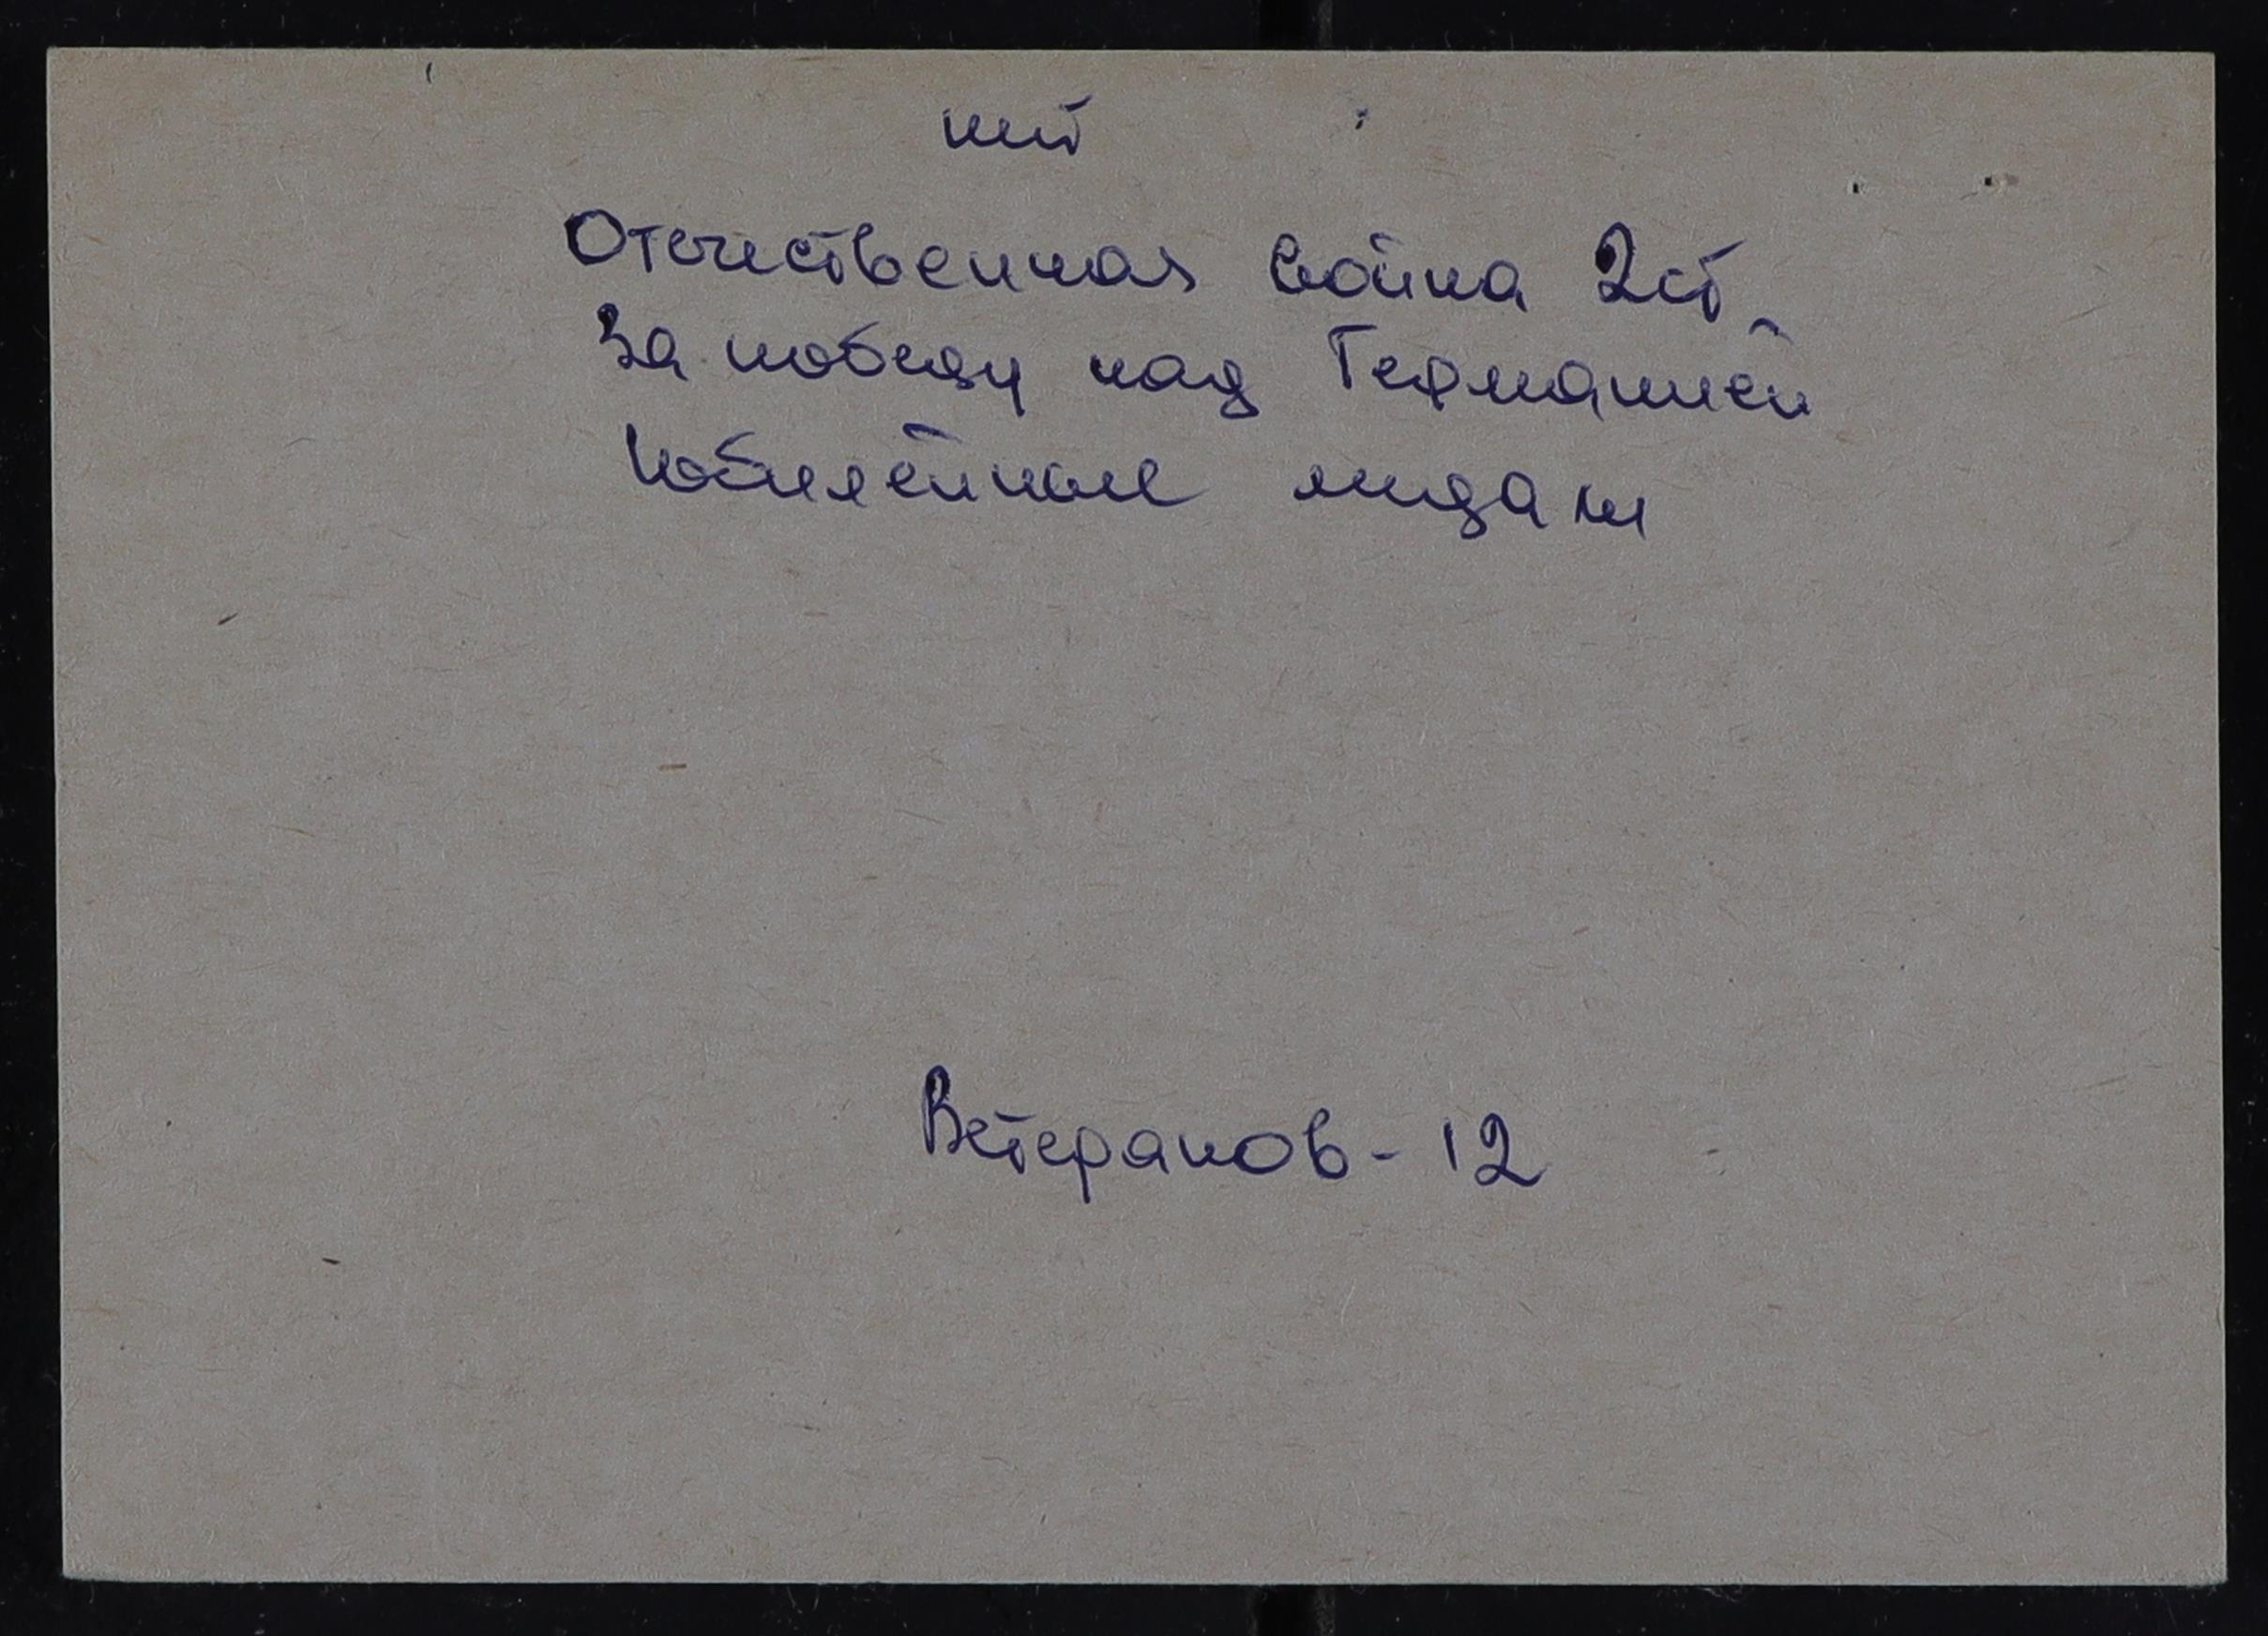 нет
Отечественная война 2ст
За победу над Германией
Юбилейные медали
Ветеранов - 12